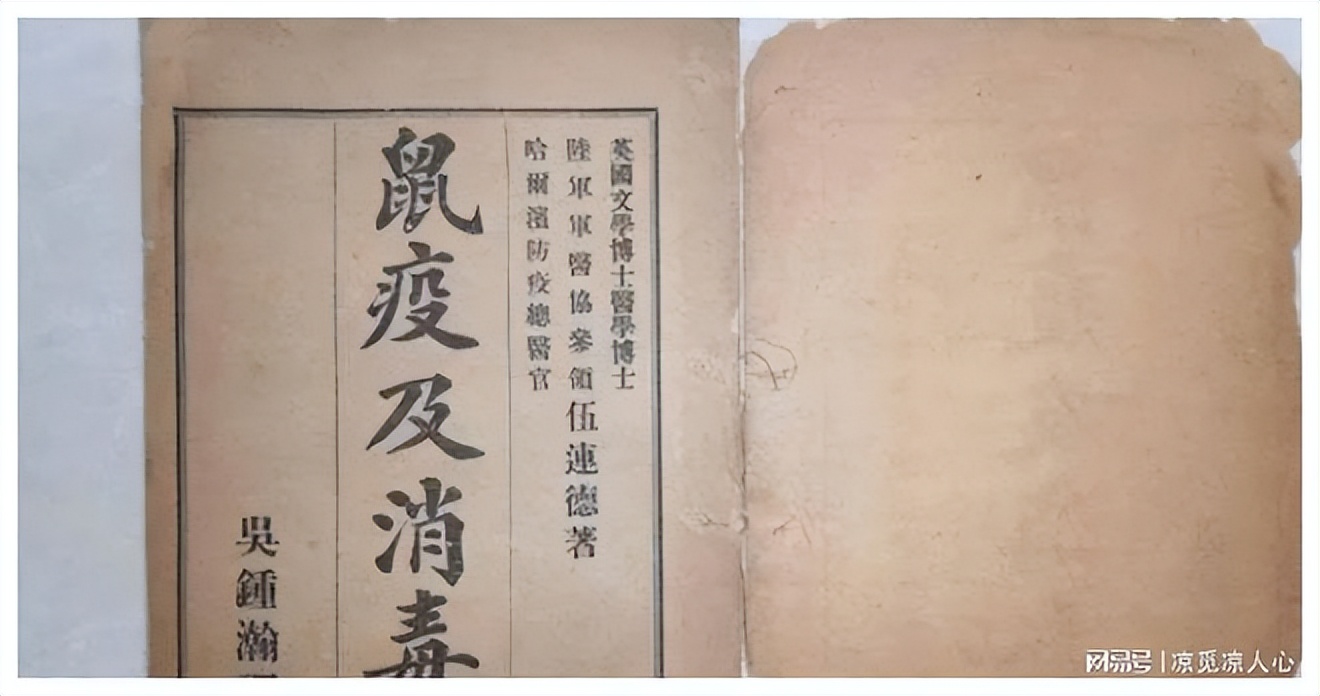 英國文學博士醫學博士
陸軍軍醫協參領伍連德著
哈爾濱防疫總醫官
鼠疫及消毒
吳鍾瀚
网易号 | 凉觅凉人心